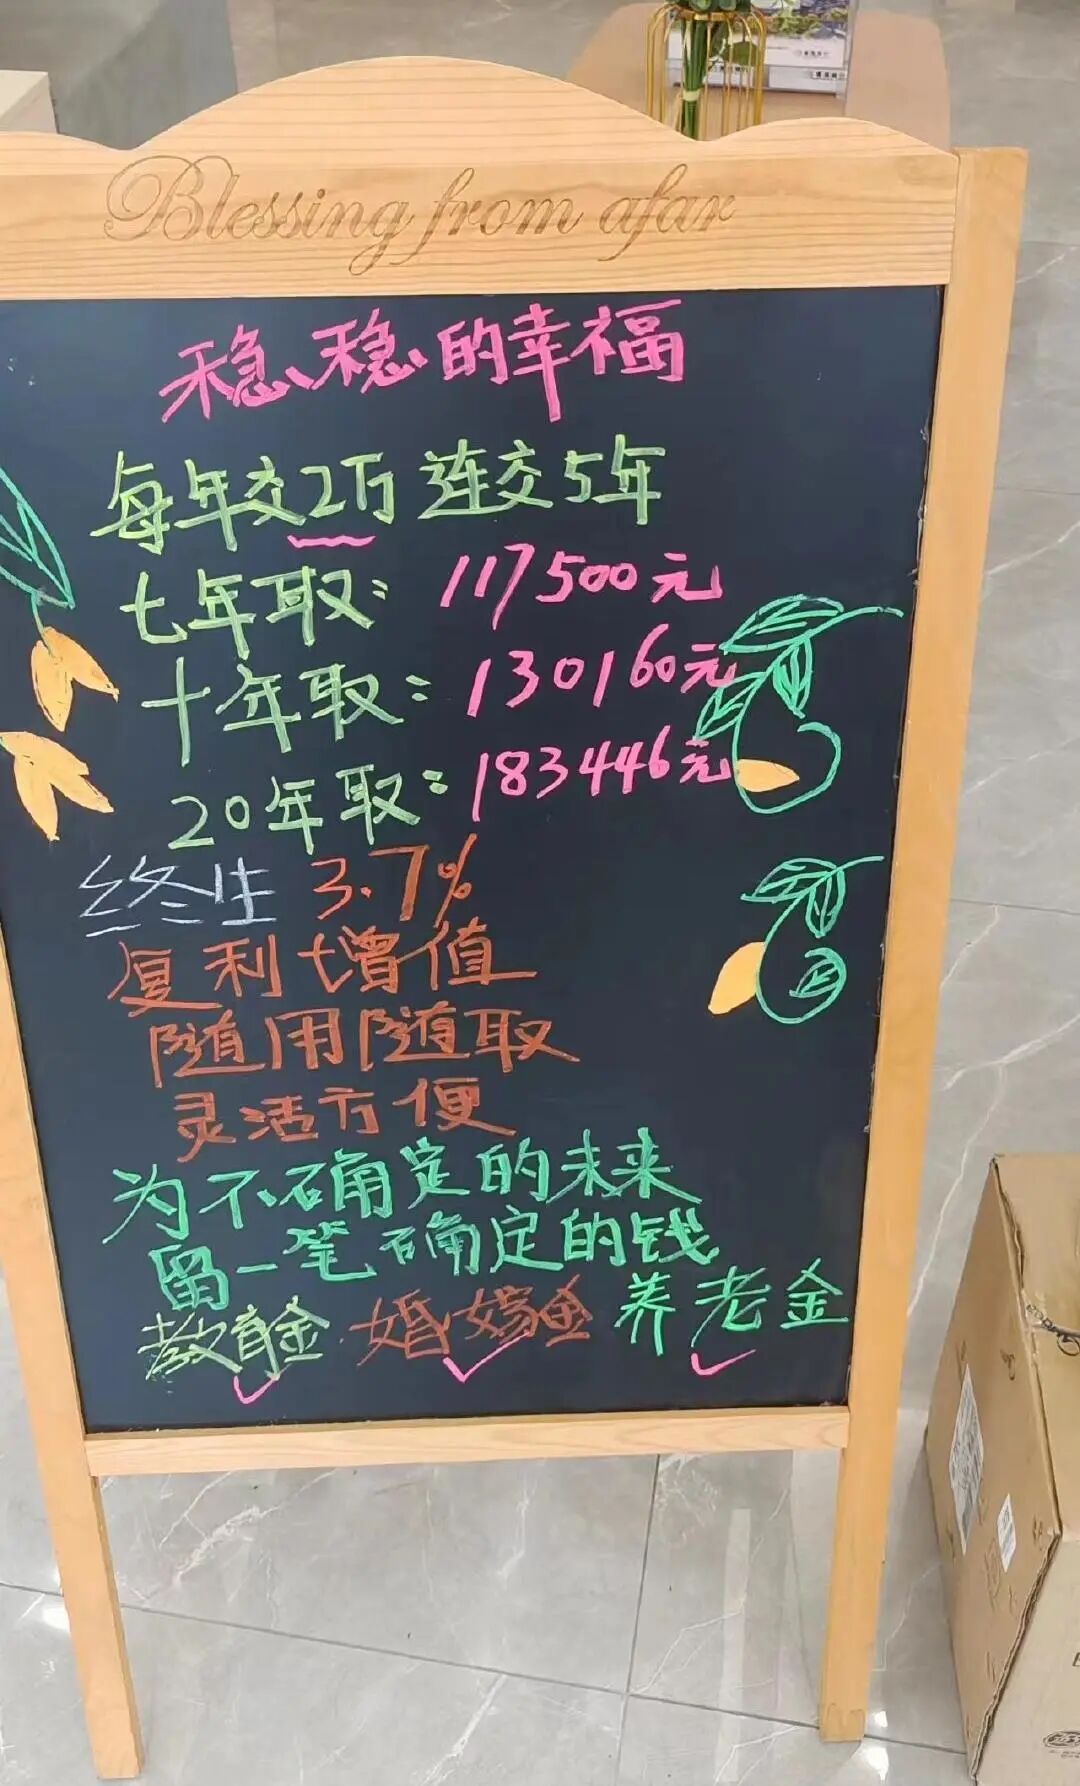 Blessing from afar
稳稳的幸福
每年交2万 连交5年
七年取: 117500元
十年取: 130160元
20年取: 183446元
终生 3.7%
复利增值
随用随取
灵活方便
为不确定的未来
留一笔确定的钱
教育金 婚嫁金 养老金